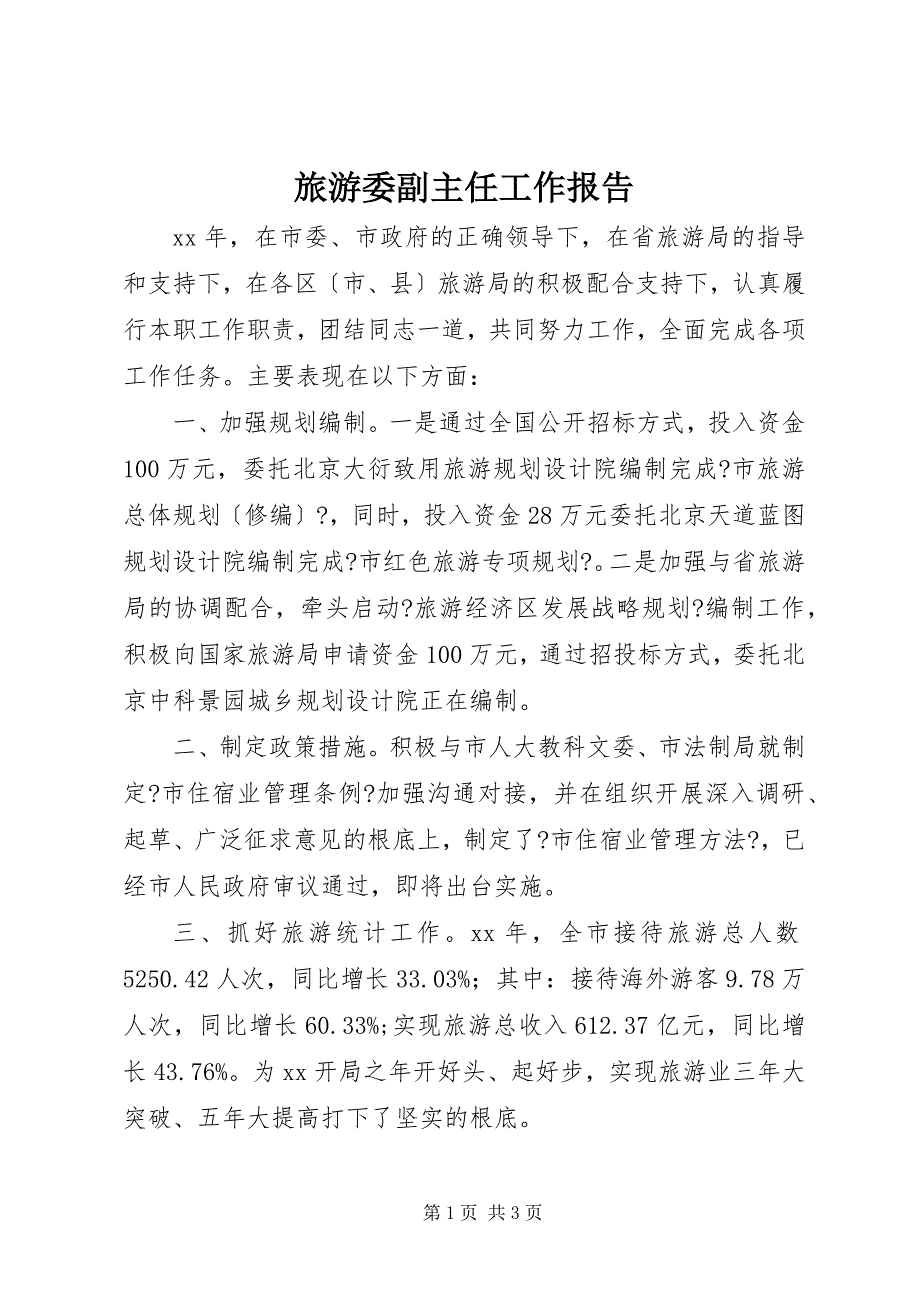 旅游委副主任工作报告
xx 年，在市委、市政府的正确领导下，在省旅游局的指导
和支持下，在各区〔市、县〕旅游局的积极配合支持下，认真履
行本职工作职责，团结同志一道，共同努力工作，全面完成各项
工作任务。主要表现在以下方面：
一、加强规划编制。一是通过全国公开招标方式，投入资金
100 万元，委托北京大衍致用旅游规划设计院编制完成?市旅游
总体规划〔修编〕?，同时，投入资金 28 万元委托北京天道蓝图
规划设计院编制完成?市红色旅游专项规划?。二是加强与省旅游
局的协调配合，牵头启动?旅游经济区发展战略规划?编制工作，
积极向国家旅游局申请资金 100 万元，通过招投标方式，委托北
京中科景园城乡规划设计院正在编制。
二、制定政策措施。积极与市人大教科文委、市法制局就制
定?市住宿业管理条例?加强沟通对接，并在组织开展深入调研、
起草、广泛征求意见的根底上，制定了?市住宿业管理方法?，已
经市人民政府审议通过，即将出台实施。
三、抓好旅游统计工作。xx 年，全市接待旅游总人数
5250.42 人次，同比增长 33.03%；其中：接待海外游客 9.78 万
人次，同比增长 60.33%;实现旅游总收入 612.37 亿元，同比增
长 43.76%。为 xx 开局之年开好头、起好步，实现旅游业三年大
突破、五年大提高打下了坚实的根底。
第 1 页 共 3 页